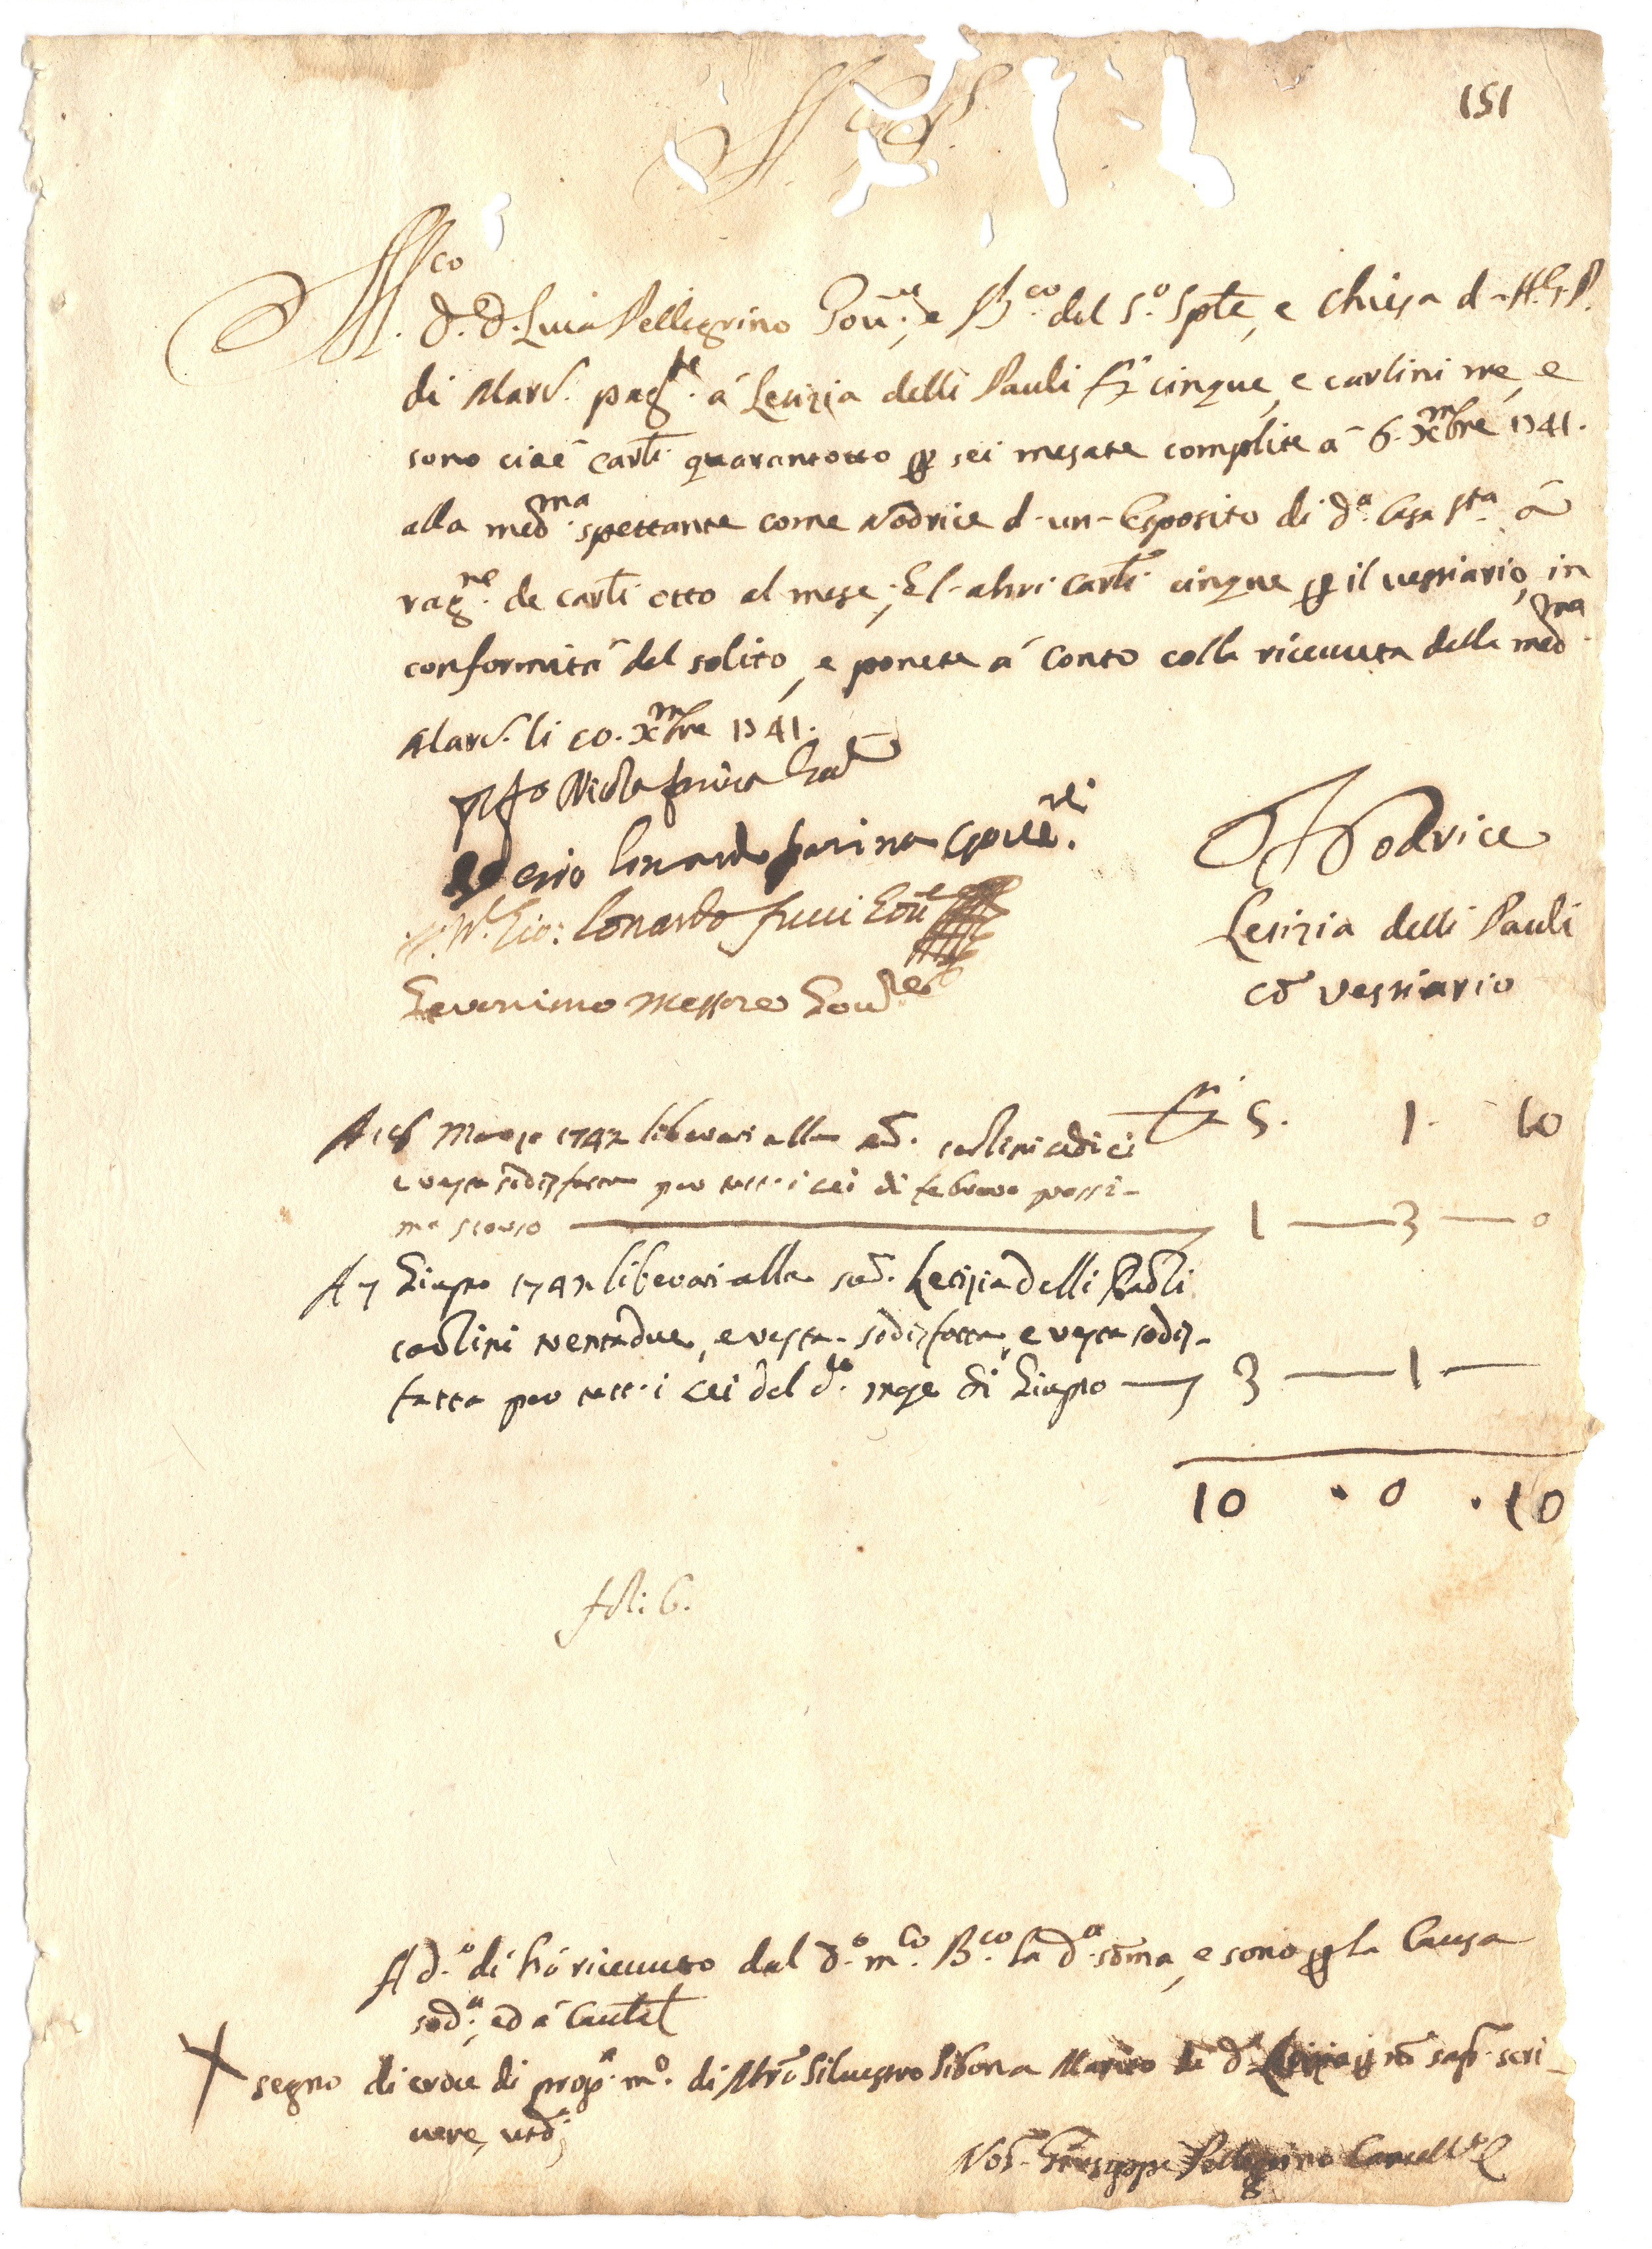 151
M.co D. D. Luca Pellegrino Gou.re, e B.co del S.o Sple, e Chiesa d-A.G.P.
di Marc. pag.te á Letizia delli Pauli D.ti cinque, e carlini tre, e
sono cioè carli quarantotto per sei mesate complite á 6. Xmbre 1741.
alla med.ma spettante come Nodrice d-un-Esposito di d.a Casa S.ta á
rag.ne de carli otto al mese; El-altri carli cinque per il uestiario, in
conformità del solito, e ponete á conto colla riceuuta della med.ma
Marc. li 20. Xmbre 1741.
Nicola
Lonardo Farina Gouer.
Gio: Lonardo Fucci Gou.re
Geronimo Messere Gou.re
Nodrice
Letizia delli Pauli
cō vestiario
5. 1. 10
A 16 Marzo 1742 liberati alla sud. carlini tredici
e resta sodisfatta per tutti i sei di febraro prossi-
mo scorso 1 — 3 — 0
A 7 Giugno 1742 liberati alla sud. Letizia delli Paoli
carlini trentadue, e resta sodisfatta, e resta sodis-
fatta per tutti i sei del d.to mese di Giugno 3 — 1 —
10 . 0 . 10
fol: 6.
A d.o di hó riceuuto dal d.o m.co B.co la d.a sōma, e sono per la causa
sod.a, ed á cautel
X segno di croce di prop.a m.o di Mrō Siluestro Sibona Marito di d.a Letizia per nō saper scri-
uere, utdj
Not. Giuseppe Pellegrino Cancell.re